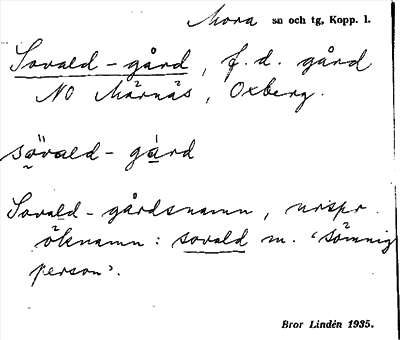 Mora sn och tg, Kopp. l.
Sovald-gård, f.d. gård
NO Märnäs, Oxberg.
sövald-gård
Sovald-gårdsnamn, urspr.
öknamn: sovald m. 'sömnig
person'.
Bror Lindén 1935.